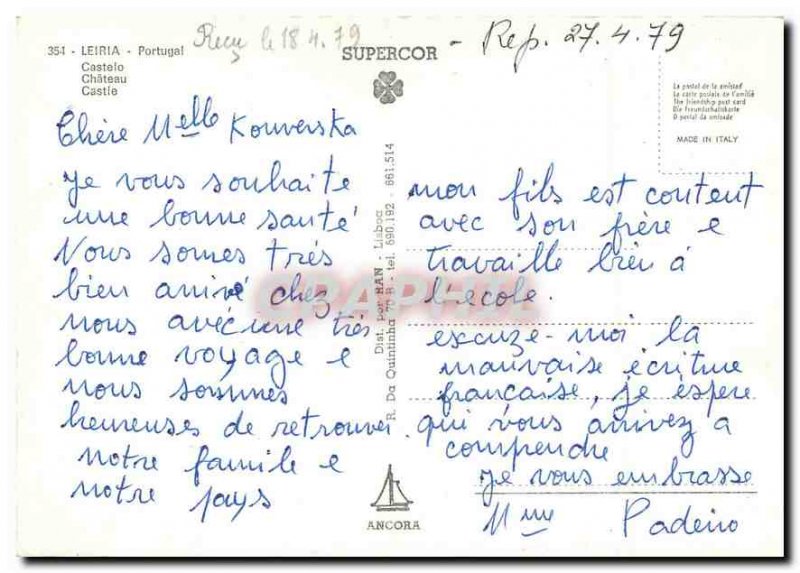 354 - LEIRIA - Portugal
Castelo
Château
Castle
Reçu le 18 4. 79
SUPERCOR
- Rep. 27. 4. 79
La postal de la amistad
La carte postale de l'amitié
The friendship post card
Die Freundschaftskarte
O postal da amizade
MADE IN ITALY
Chère Melle Kouverska
Je vous souhaite
une bonne santé
Vous somes très
bien arrivé chez
nous avec une très
bonne voyage e
nous sommes
heureuses de retrouver
notre famile e
notre pays
Dist. por HAN - Lisboa
R. Da Quintinha 70 B - tel. 690.192 - 661.514
ANCORA
mon fils est content
avec son frère e
travaille bien á
l'ecole.
excuze-moi la
mauvaise écriture
française, je espere
qui vous arrivez a
comprendre
je vous embrasse
Mme Padeiro